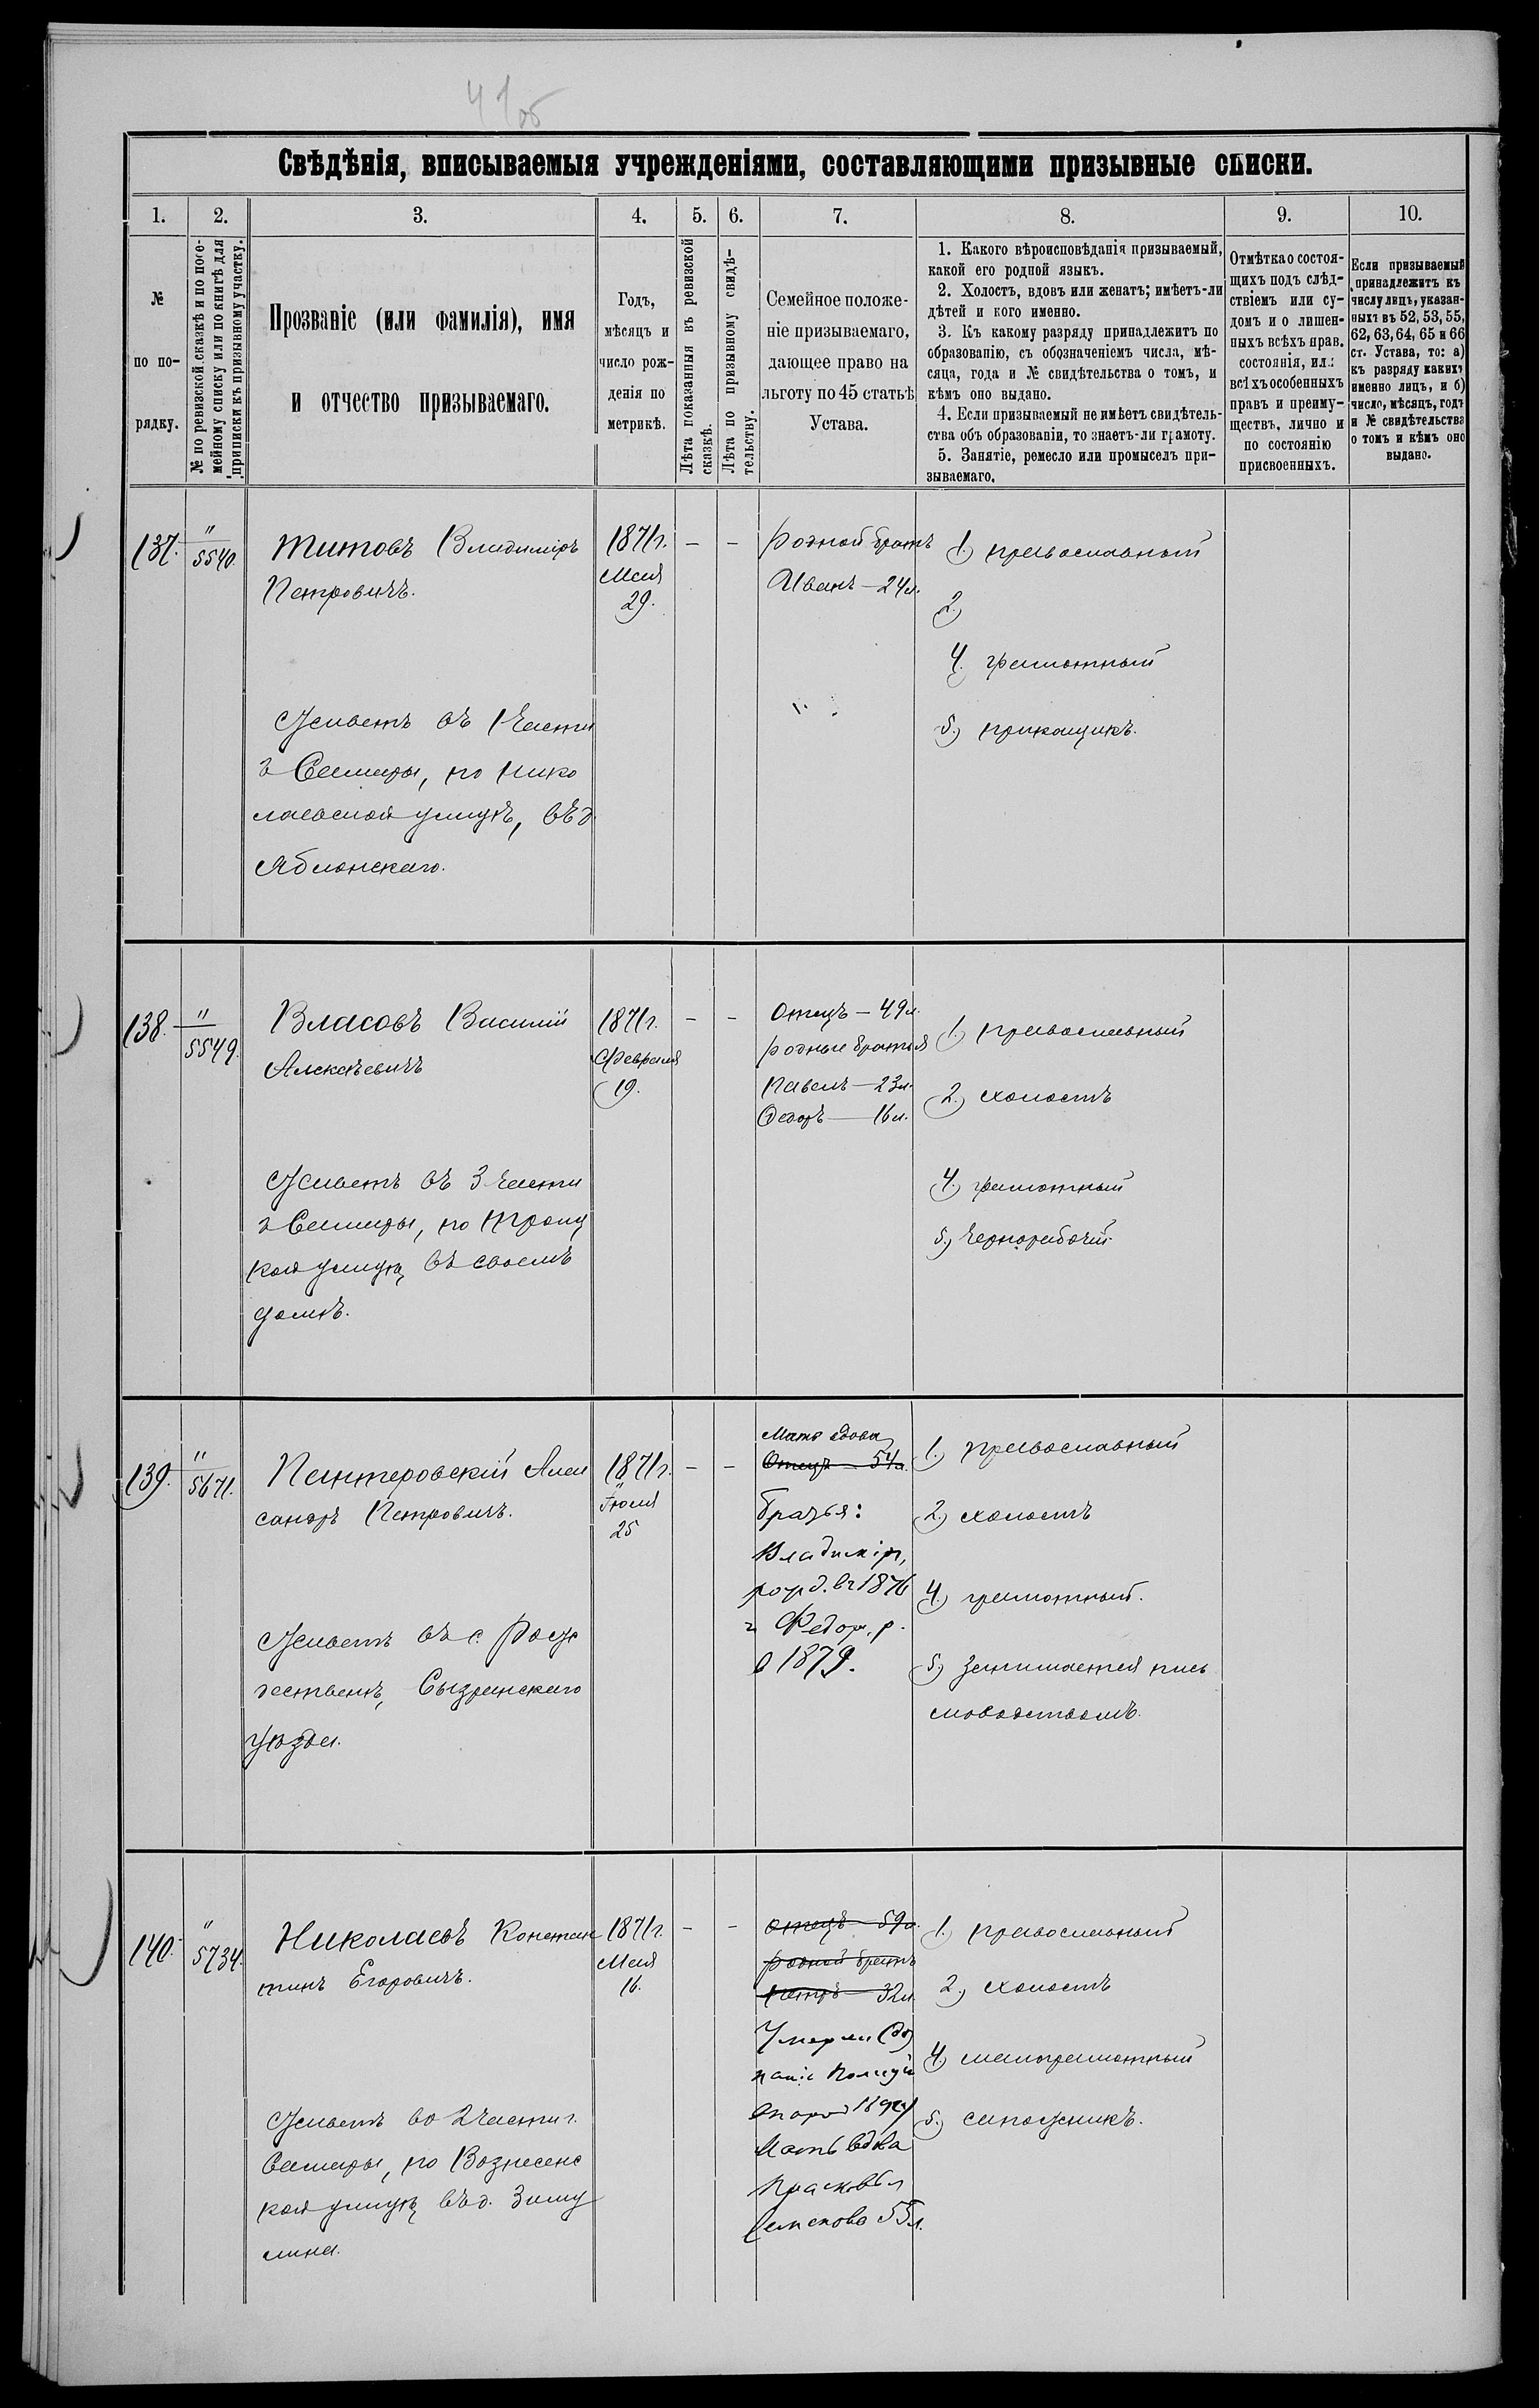 41об
Свѣдѣнія, вписываемыя учрежденіями, составляющими призывные списки.
1. 2. 3. 4. 5. 6. 7. 8. 9. 10.
№
по по-
рядку.
№ по ревизской сказкѣ и по посе-
мейному списку или по книгѣ для
приписки къ призывному участку.
Прозваніе (или фамилія), имя
и отчество призываемаго.
Годъ,
мѣсяцъ и
число рож-
денія по
метрикѣ.
Лѣта показанныя въ ревизской
сказкѣ.
Лѣта по призывному свидѣ-
тельству.
Семейное положе-
ніе призываемаго,
дающее право на
льготу по 45 статьѣ
Устава.
1. Какого вѣроисповѣданія призываемый,
какой его родной языкъ.
2. Холостъ, вдовъ или женатъ; имѣетъ-ли
дѣтей и кого именно.
3. Къ какому разряду принадлежитъ по
образованію, съ обозначеніемъ числа, мѣ-
сяца, года и № свидѣтельства о томъ, и
кѣмъ оно выдано.
4. Если призываемый не имѣетъ свидѣтель-
ства объ образованіи, то знаетъ-ли грамоту.
5. Занятіе, ремесло или промыселъ при-
зываемаго.
Отмѣтка о состоя-
щихъ подъ слѣд-
ствіемъ или су-
домъ и о лишен-
ныхъ всѣхъ прав.
состоянія, или
всѣхъ особенныхъ
правъ и преиму-
ществъ, лично и
по состоянію
присвоенныхъ.
Если призываемый
принадлежитъ къ
числу лицъ, указан-
ныхъ въ 52, 53, 55,
62, 63, 64, 65 и 66
ст. Устава, то: а)
къ разряду какихъ
именно лицъ, и б)
число, мѣсяцъ, годъ
и № свидѣтельства
о томъ и кѣмъ оно
выдано.
137.
"
5540.
Титовъ Владиміръ
Петровичъ.
Живетъ въ 1 части
г Самары, по Нико
лаевской улицѣ, въ д
Яблонскаго.
1871 г.
Мая
29.
– –
родной братъ
Иванъ – 24 л.
1) православный
2)
4) грамотный
5) прикащикъ.
138.
"
5549.
Власовъ Василій
Алексѣевичъ
Живетъ въ 3 части
г Самары, по Троиц
кой улицѣ въ своемъ
домѣ.
1871 г.
Февраля
19.
– –
Отецъ – 49 л.
родные братья
Павелъ – 23 л.
Федоръ – 16 л.
1) православный
2) холостъ
4) грамотный
5) чернорабочій
139.
"
5671.
Пантеровскій Алек
сандръ Петровичъ.
Живетъ въ с. Рож
дественѣ, Сызранскаго
уѣзда.
1871 г.
Іюля
25
– –
Мать вдова
Отецъ – 54 л.
братья:
Владимір,
рожд. въ 1876
г Федор, р.
в 1879.
1) православный
2) холостъ
4) грамотный.
5) занимается пись
моводствомъ.
140.
"
5734.
Николаевъ Констан
тинъ Егоровичъ.
Живетъ во 2 части г.
Самары, по Вознесенс
кой улицѣ въ д. Зину
лина.
1871 г.
Мая
16.
– –
Отецъ – 59 л.
родной братъ
Петръ – 32 л.
Умерли
Мать вдова
Прасковья
55 л.
1) православный
2) холостъ
4) малограмотный
5) сапожникъ.